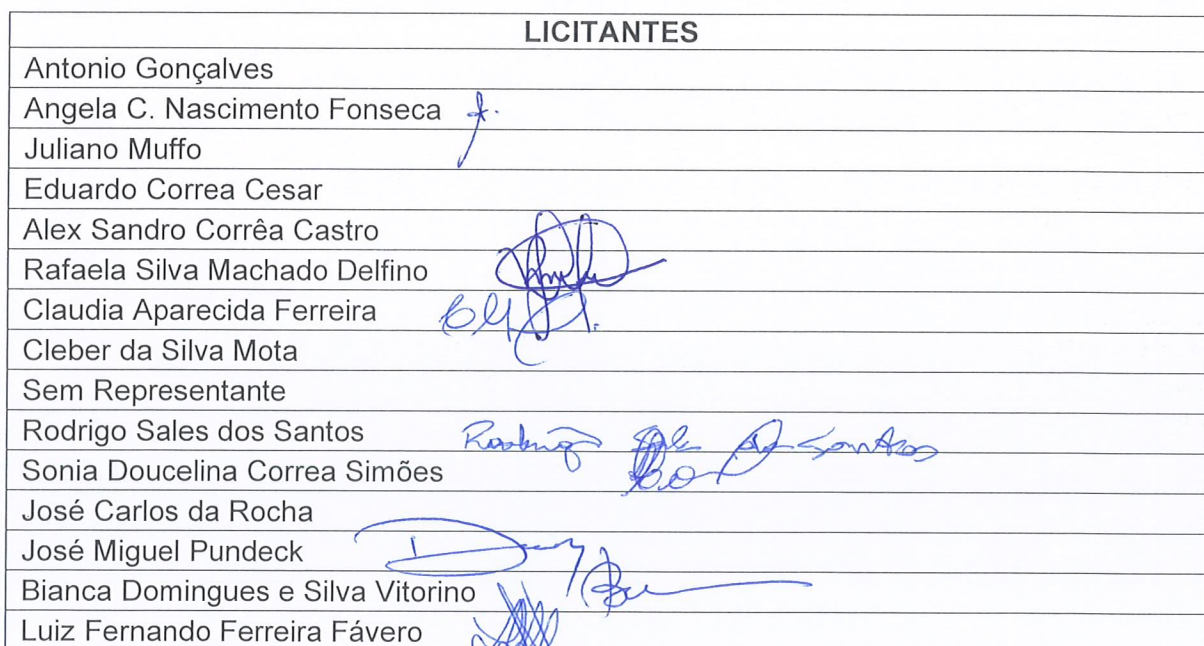 LICITANTES
Antonio Gonçalves
Angela C. Nascimento Fonseca
Juliano Muffo
Eduardo Correa Cesar
Alex Sandro Corrêa Castro
Rafaela Silva Machado Delfino
Claudia Aparecida Ferreira
Cleber da Silva Mota
Sem Representante
Rodrigo Sales dos Santos Rodrigo Sales dos Santos
Sonia Doucelina Correa Simões
José Carlos da Rocha
José Miguel Pundeck
Bianca Domingues e Silva Vitorino
Luiz Fernando Ferreira Fávero